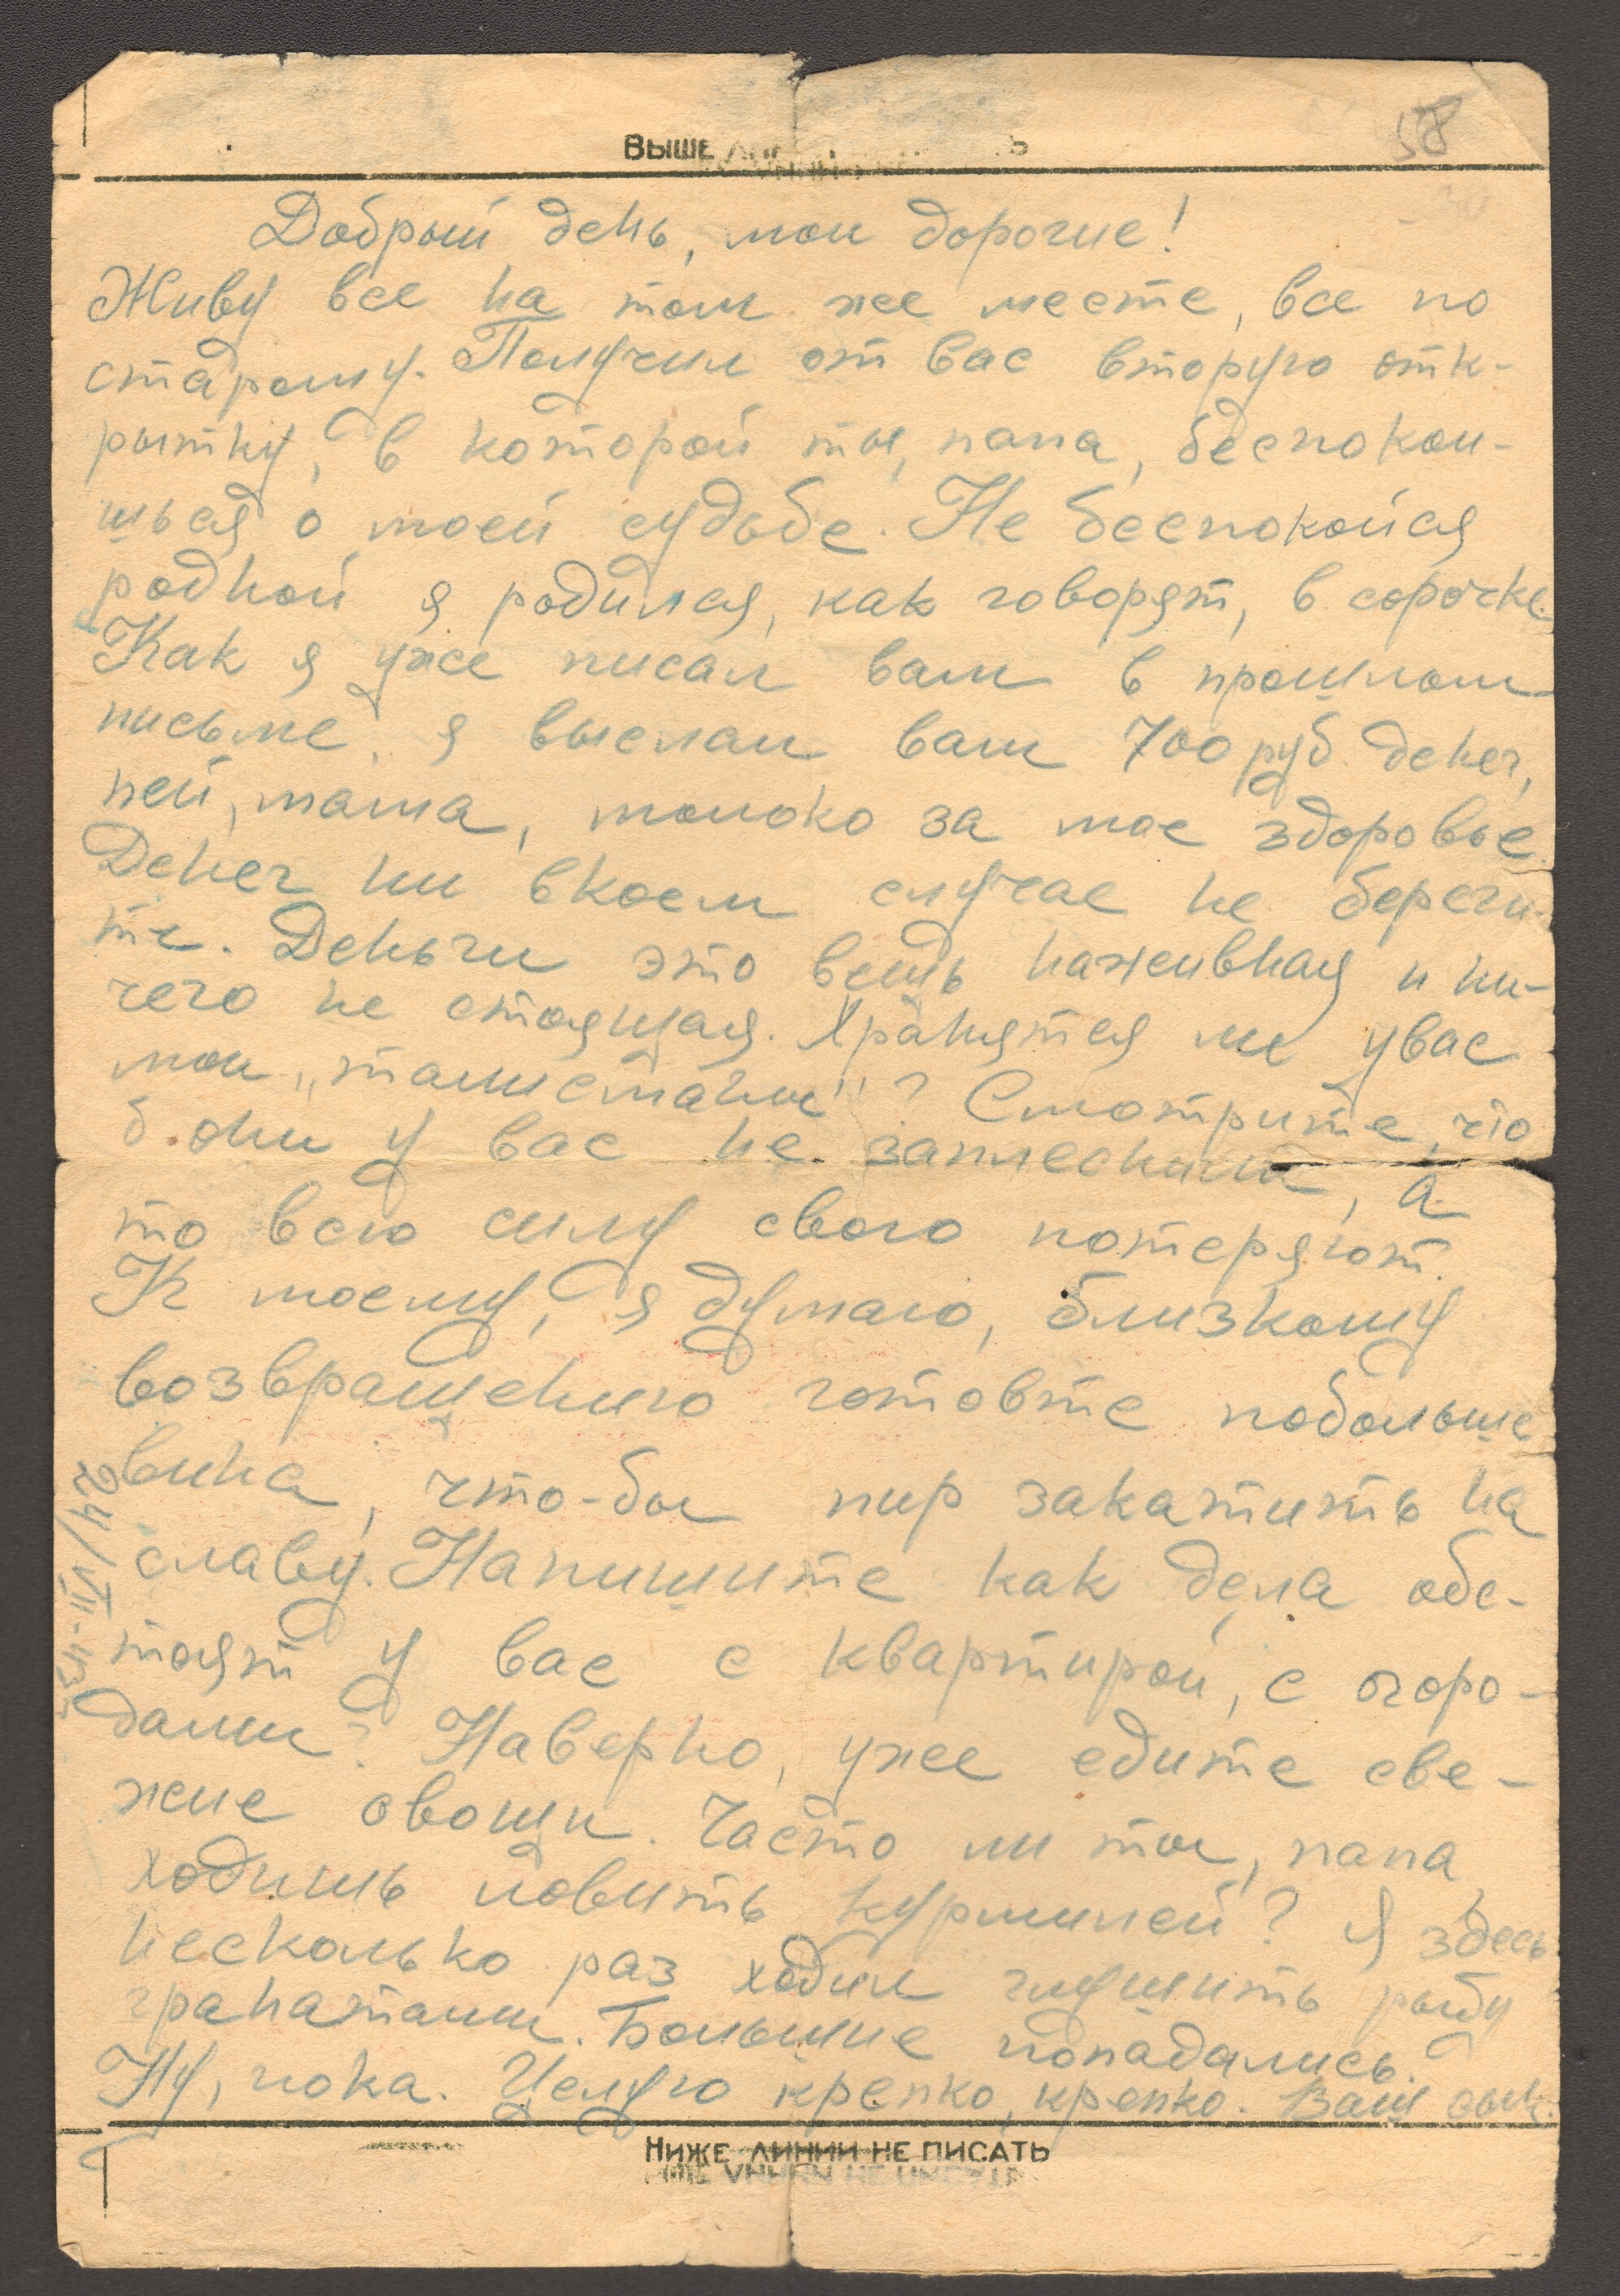 58
ВЫШЕ
Добрый день, мои дорогие!
Живу все на том же месте, все по
старому. Получил от вас вторую отк-
рытку, в которой ты, папа, беспокои-
шься о моей судьбе. Не беспокойся
родной я родился, как говорят, в сорочке.
Как я уже писал вам в прошлом
письме, я выслал вам 700 руб. денег,
пей, мама, молоко за мое здоровье.
Денег ни вкоем случае не береги-
те. Деньги это вещь наживная и ни-
чего не стоящая. Хранятся ли у вас
мои „талисманы"? Смотрите, что
б они у вас не заплеснили, а
то всю силу свою потеряют.
К моему, я думаю, близкому
возвращению готовте побольше
вина, что-бы пир закатить на
славу. Напишите как дела обс-
тоят у вас с квартирой, с огоро-
дами? Наверно, уже едите све-
жие овощи. Часто ли ты, папа,
ходишь ловить курмилей? Я здесь
несколько раз ходил глушить рыбу
гранатами. Большие попадались.
Ну, пока. Целую крепко, крепко. Ваш сын.
24/VII-43г.
НИЖЕ ЛИНИИ НЕ ПИСАТЬ